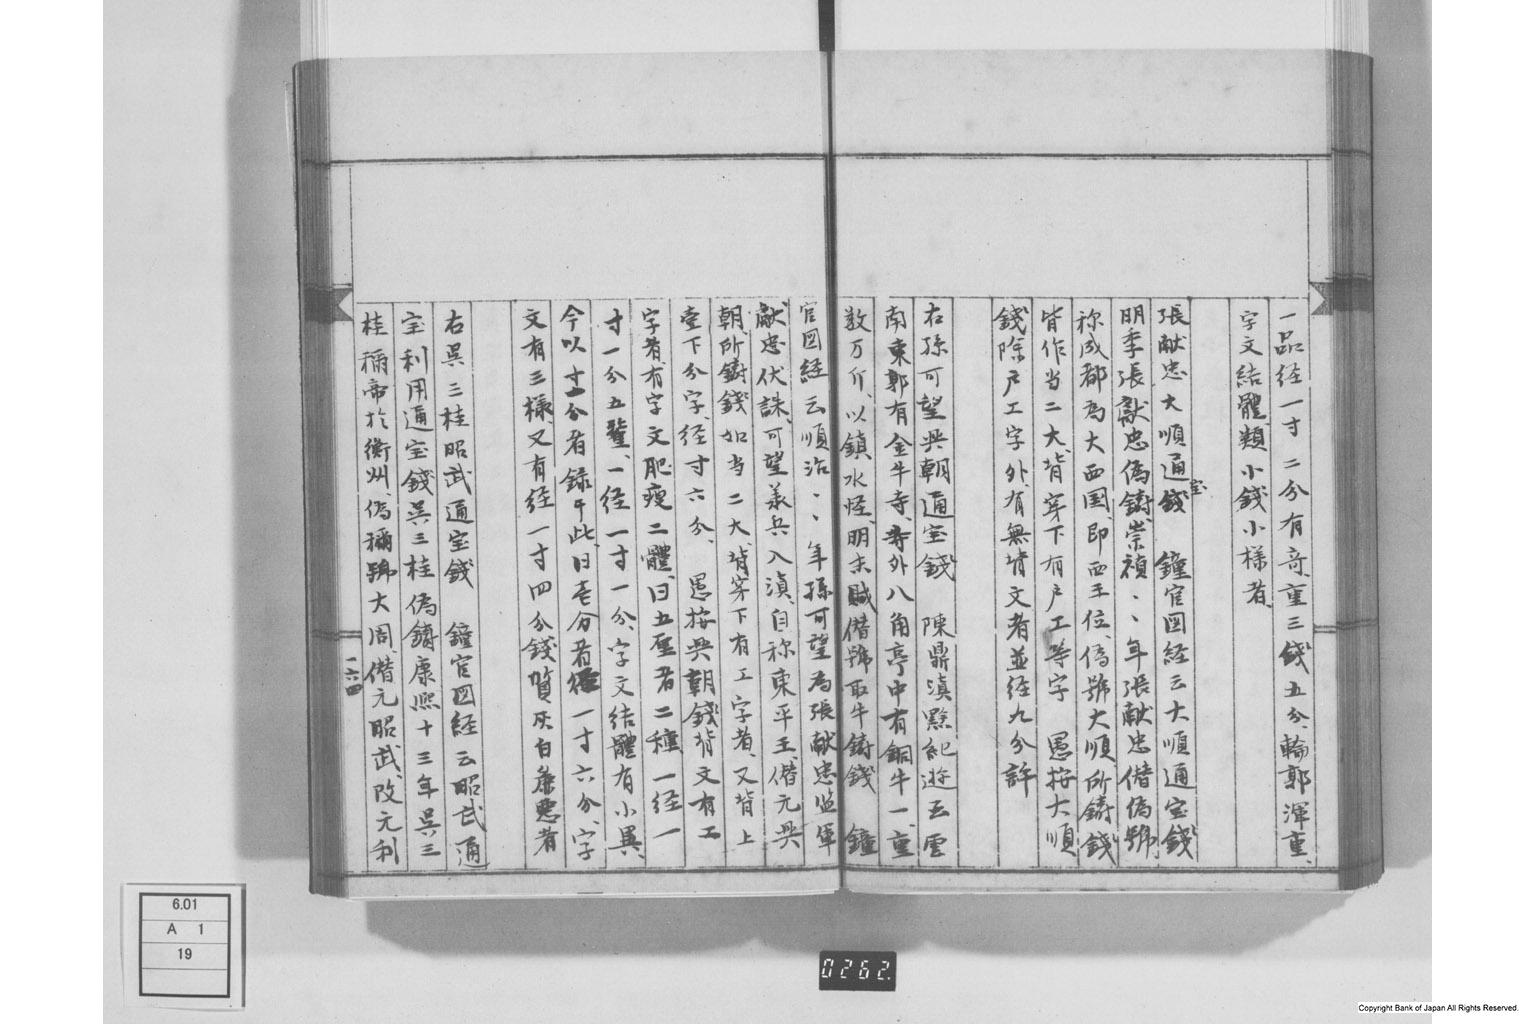 一品経一寸二分有奇重三錢五分、輪郭渾重、
字文結體類小錢小樣者、
張献忠大順通宝錢　鐘官図経云大順通宝錢
明季張献忠偽鋳、崇禎、、年張献忠僭偽號
称成都為大西国、即西王位、偽號大順所鋳錢
皆作当二大、背穿下有戸工等字　愚按大順
錢除戸工字外、有無背文者並径九分許
右孫可望興朝通宝錢　陳鼎滇黔紀遊云雲
南東郭有金牛寺、寺外八角亭中有銅牛一、重
数万斤、以鎮水怪、明末賊僭號取牛鋳錢　鐘
官図経云順治、、年孫可望為張献忠監軍
献忠伏誅、可望義兵入滇、自称東平王、僭元興
朝、所鋳錢如当二大、背穿下有工字者、又背上
壹下分字、径寸六分、　愚按興朝錢背文有工
字者、有字文肥痩二體、曰五厘者二種、一径一
寸一分五釐、一径一寸一分、字文結體有小異、
今以寸一分者録于此、曰壱分者径一寸六分、字
文有三樣、又有径一寸四分錢質灰白麁悪者
右呉三桂昭武通宝錢　鐘官図経云昭武通
宝利用通宝錢呉三桂偽鋳康熙十三年呉三
桂稱帝於衡州、偽稱號大周、僭元昭武、改元利
一六四
6.01
A 1
19
0262.
Copyright Bank of Japan All Rights Reserved.